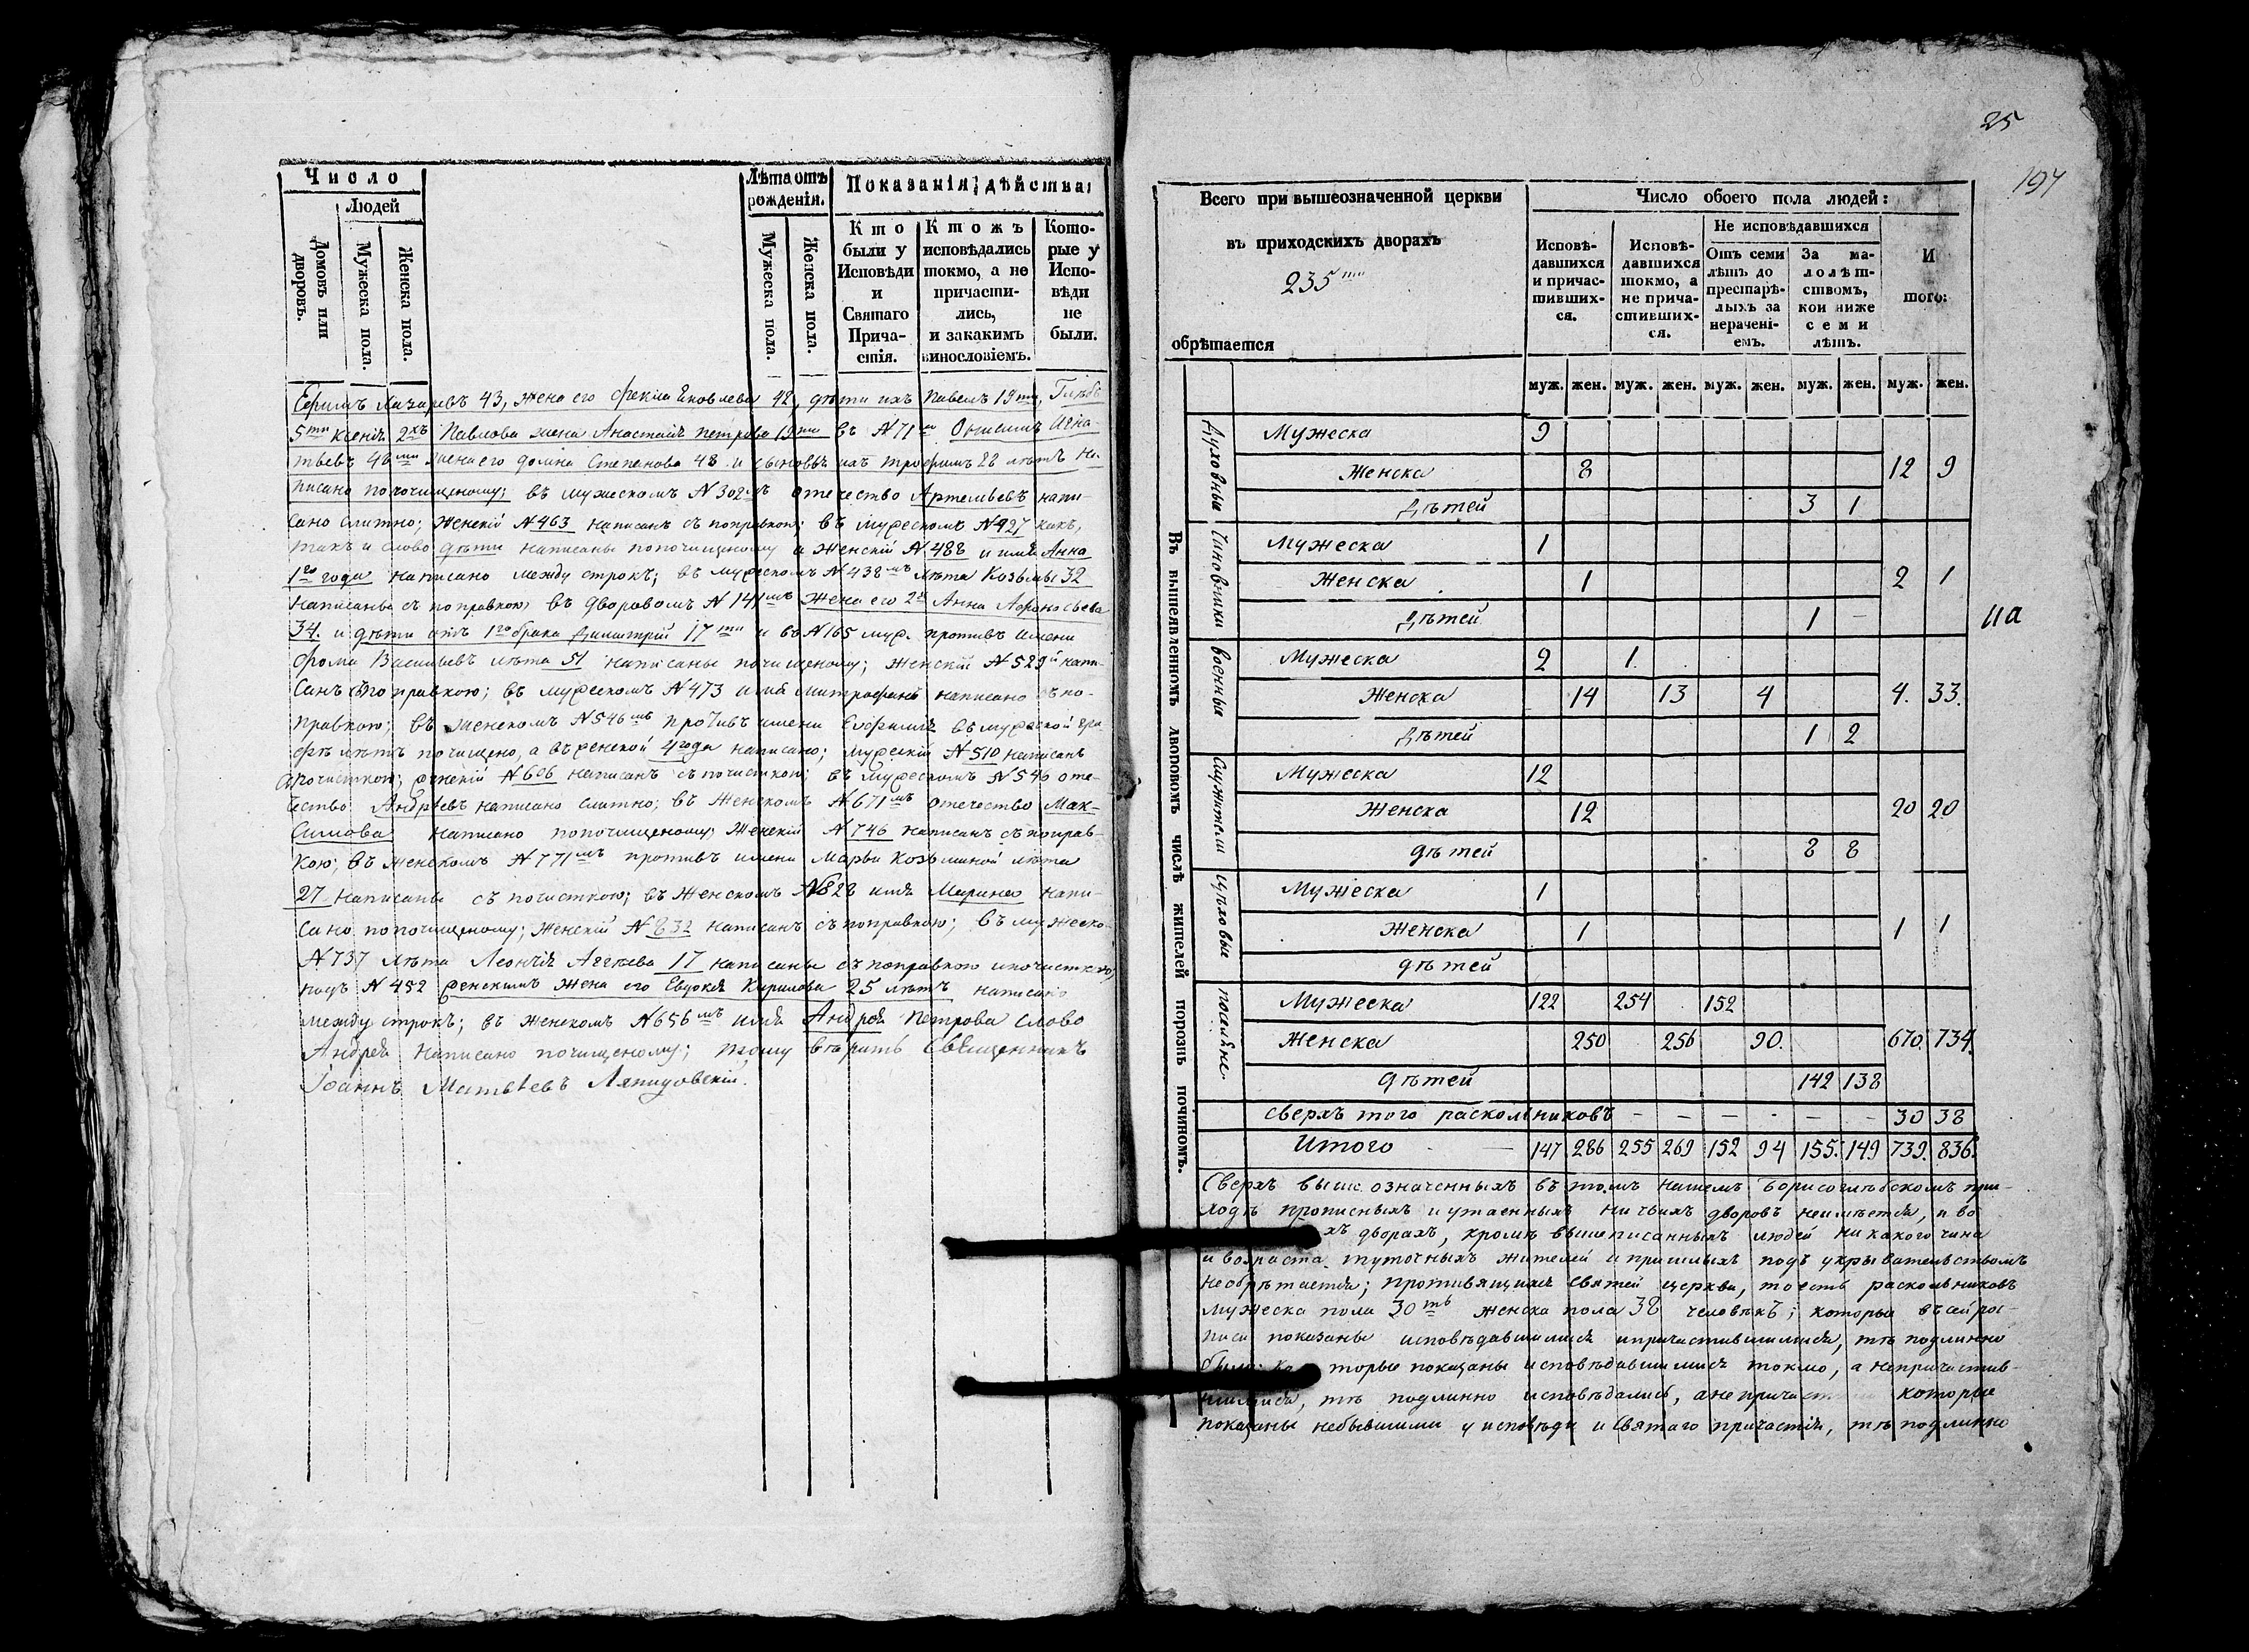 Число
Людей
Домовъ или дворовъ.
Мужеска пола.
Женска пола.
Лѣта отъ рожденія.
Мужеска пола.
Женска пола.
Показанія дѣйства:
Кто были у Исповѣди и Святаго Причастія.
Ктожъ исповѣдались токмо, а не причастились, и закакимъ винословіемъ.
Которые у Исповѣди не были.
Ефимъ Лазаревъ 43, жена его Фекла Яковлева 42, дѣти ихъ Павелъ 19ти, Глѣбъ
5ти Ксенія 2хъ Павлова жена Анастасія Петрова 19ти въ №71м Онисимъ Игна-
тьевъ 48ми жена его Домна Степанова 48 и сыновья ихъ Трофимъ 28 лѣтъ на-
писано попочищеному; въ мужескомъ №302мъ отечество Артемьевъ напи-
сано слитно; женскій №463 написанъ съ поправкою; въ мужескомъ №427 какъ,
такъ и слово дѣти написаны попочищеному а женскій №488 и имя Анна
1го года написано между строкъ; въ мужескомъ №438мъ лѣта Козьмы 32
написаны съ поправкою въ дворовомъ №141мъ жена его 2я Анна Афонасьева
34. и дѣти отъ 1го брака Димитрій 17ти и въ №165 муж. противъ имени
Фрома Васильевъ лѣта 51 написаны почищеному; женскій №529й напи-
санъ съ поправкою; въ мужескомъ №473 имя Митрофанъ написано съ по-
правкою; въ женскомъ №546мъ противъ имени Евфиміи въ мужской гра-
фѣ лѣтъ почищено, а въ женской 4 года написано; мужескій №510 написанъ
спочисткою; женскій №606 написанъ съ почисткою; въ мужескомъ №546 оте-
чество Андреевъ написано слитно; въ женскомъ №671мъ отечество Мак-
симова написано попочищеному; женскій №746 написанъ съ поправ-
кою; въ женскомъ №771мъ противъ имени Марьи Козьминой лѣта
27 написаны съ почисткою; въ женскомъ №828 имя Марина напи-
сано попочищеному; женскій №832 написанъ съ поправкою; въ мужеско
№737 лѣта Леонтія Агѣева 17 написаны съ поправкою и почисткою;
подъ №452 женскимъ жена его Евдокія Кирилова 25 лѣтъ написано
между строкъ; въ женскомъ №656мъ имя Андрея Петрова слово
Андрея написано почищеному; тому вѣрить Священникъ
Іоаннъ Матвѣевъ Ляпидовскій.
25
197
Всего при вышеозначенной церкви
въ приходскихъ дворахъ
235ти
обрѣтается
Число обоего пола людей:
Исповѣдавшихся и причастившихся.
Исповѣдавшихся токмо, а не причастившихся.
Не исповѣдавшихся
Отъ семи лѣтъ до престарѣлыхъ за нераченіемъ.
За малолѣтствомъ, кои ниже семи лѣтъ.
И того:
муж. жен. муж. жен. муж. жен. муж. жен. муж. жен.
Въ вышеявленномъ дворовомъ числѣ жителей порознь по чиномъ.
Духовныи
Мужеска 9
Женска 8 12 9
Дѣтей 3 1
Чиновники
Мужеска 1
Женска 1 2 1
Дѣтей 1 –
11а
военныи
Мужеска 2 1.
Женска 14 13 4 4. 33.
Дѣтей 1 2
Служители
Мужеска 12
Женска 12 20 20
дѣтей 8 8
цѣховыи
Мужеска 1
Женска 1 1 1
дѣтей
поселяне.
Мужеска 122 254 152
Женска 250 256 90. 670. 734.
дѣтей 142 138
сверхъ того раскольниковъ – – – – – – 30 38
Итого – 147 286 255 269 152 94 155. 149 739. 836.
Сверхъ выше означенныхъ въ томъ нашемъ Борисоглѣбскомъ при-
ходѣ прописныхъ и утаенныхъ ни чьихъ дворовъ неимѣется, и во
хъ дворахъ, кромѣ вышеписанныхъ людей ни какого чина
и возраста туточныхъ жителей и пришлыхъ подъ укрывательствомъ
необрѣтается; противящихся святей церкви, тоесть раскольниковъ
мужеска пола 30ть женска пола 38 человѣкъ; которыя въ сей рос-
писи показаны исповѣдавшимися и причастившимися, тѣ подлинно
были; ко торые показаны исповѣдавшимися токмо, а непричастив-
шимися, тѣ подлинно исповѣдались, а не причаст которые
показаны небывшими у исповѣди и святаго причастія, тѣ подлинно